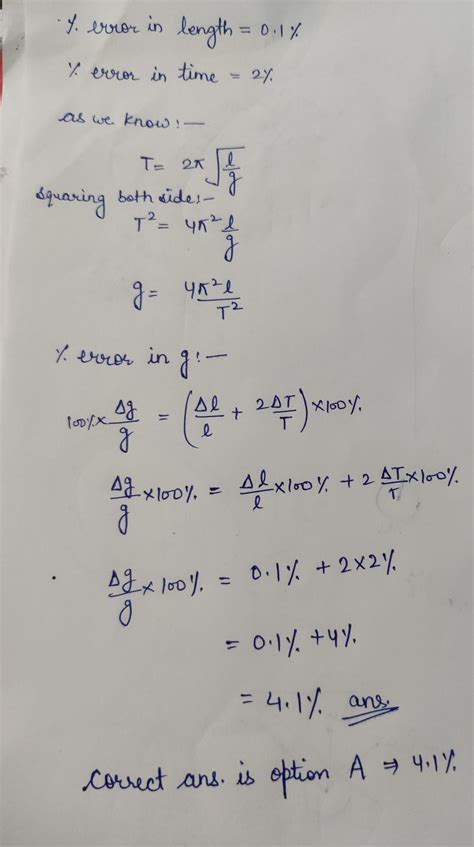 % error in length = 0.1%
% error in time = 2%
as we know:—
T = 2π √(l/g)
squaring both side:-
T² = 4π² l/g
g = 4π²l/T²
% error in g:—
100%× Δg/g = (Δl/l + 2ΔT/T) ×100%
Δg/g ×100% = Δl/l ×100% + 2 ΔT/T ×100%
Δg/g × 100% = 0.1% + 2×2%
= 0.1% + 4%
= 4.1% ans.
correct ans. is option A ⇒ 4.1%